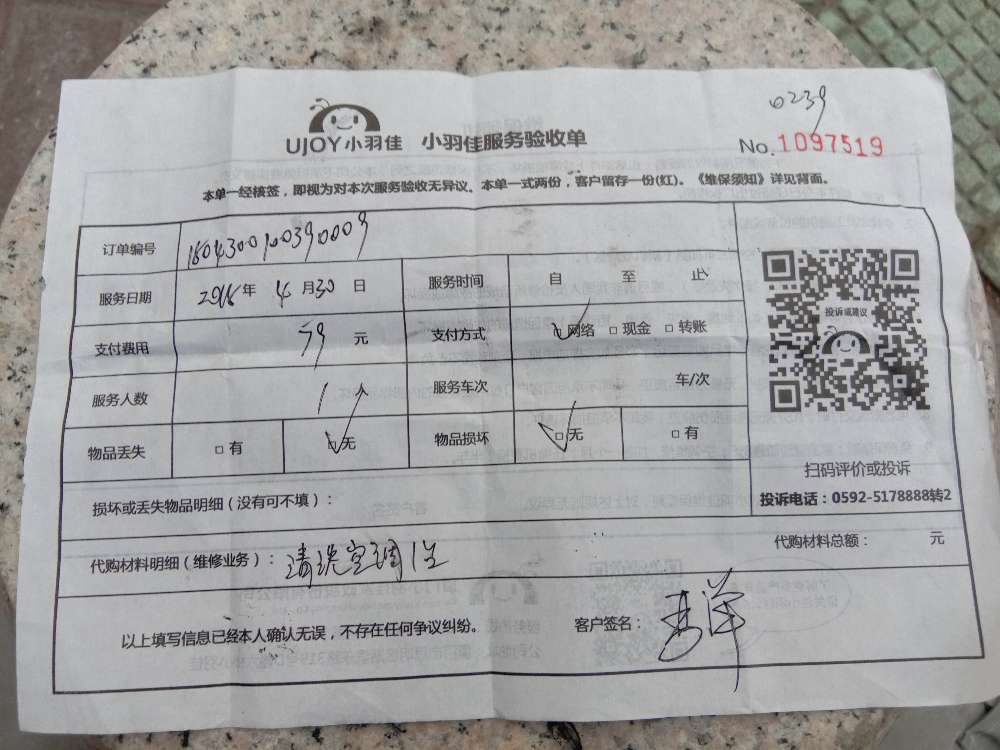 0239
UJOY小羽佳 小羽佳服务验收单
No.1097519
本单一经核签，即视为对本次服务验收无异议。本单一式两份，客户留存一份(红)。《维保须知》详见背面。
订单编号
服务日期 2016年 4月30日 服务时间 自 至 止
支付费用 79 元 支付方式 □网络 □现金 □转账
服务人数 1人 服务车次 车/次
物品丢失 □有 □无 物品损坏 □无 □有
投诉或建议
扫码评价或投诉
投诉电话：0592-5178888转2
损坏或丢失物品明细（没有可不填）：
代购材料明细（维修业务）：清洗空调1台 代购材料总额： 元
以上填写信息已经本人确认无误，不存在任何争议纠纷。 客户签名：